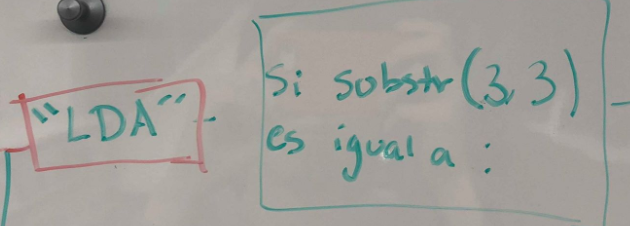 "LDA"
Si substr(3,3)
es igual a :